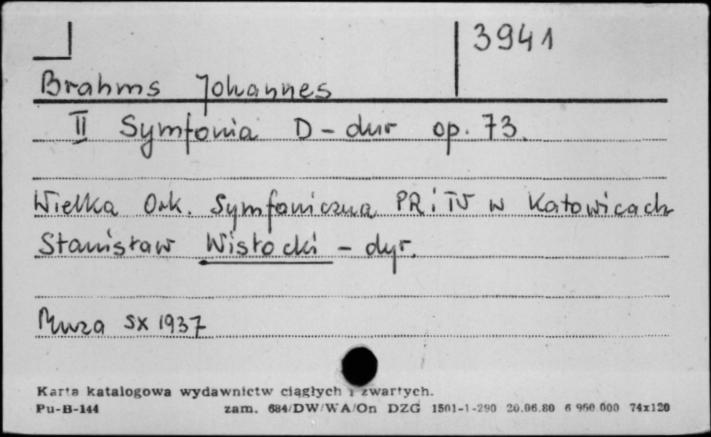 3941
Brahms Johannes
II Symfonia D-dur op. 73.
Wielka Ork. Symfoniczna PR i TV w Katowicach
Stanisław Wisłocki - dyr.
Muza SX 1937
Karta katalogowa wydawnictw ciągłych i zwartych.
Pu-B-144 zam. 684/DW/WA/On DZG 1501-1-290 20.06.80 6 950 000 74x120